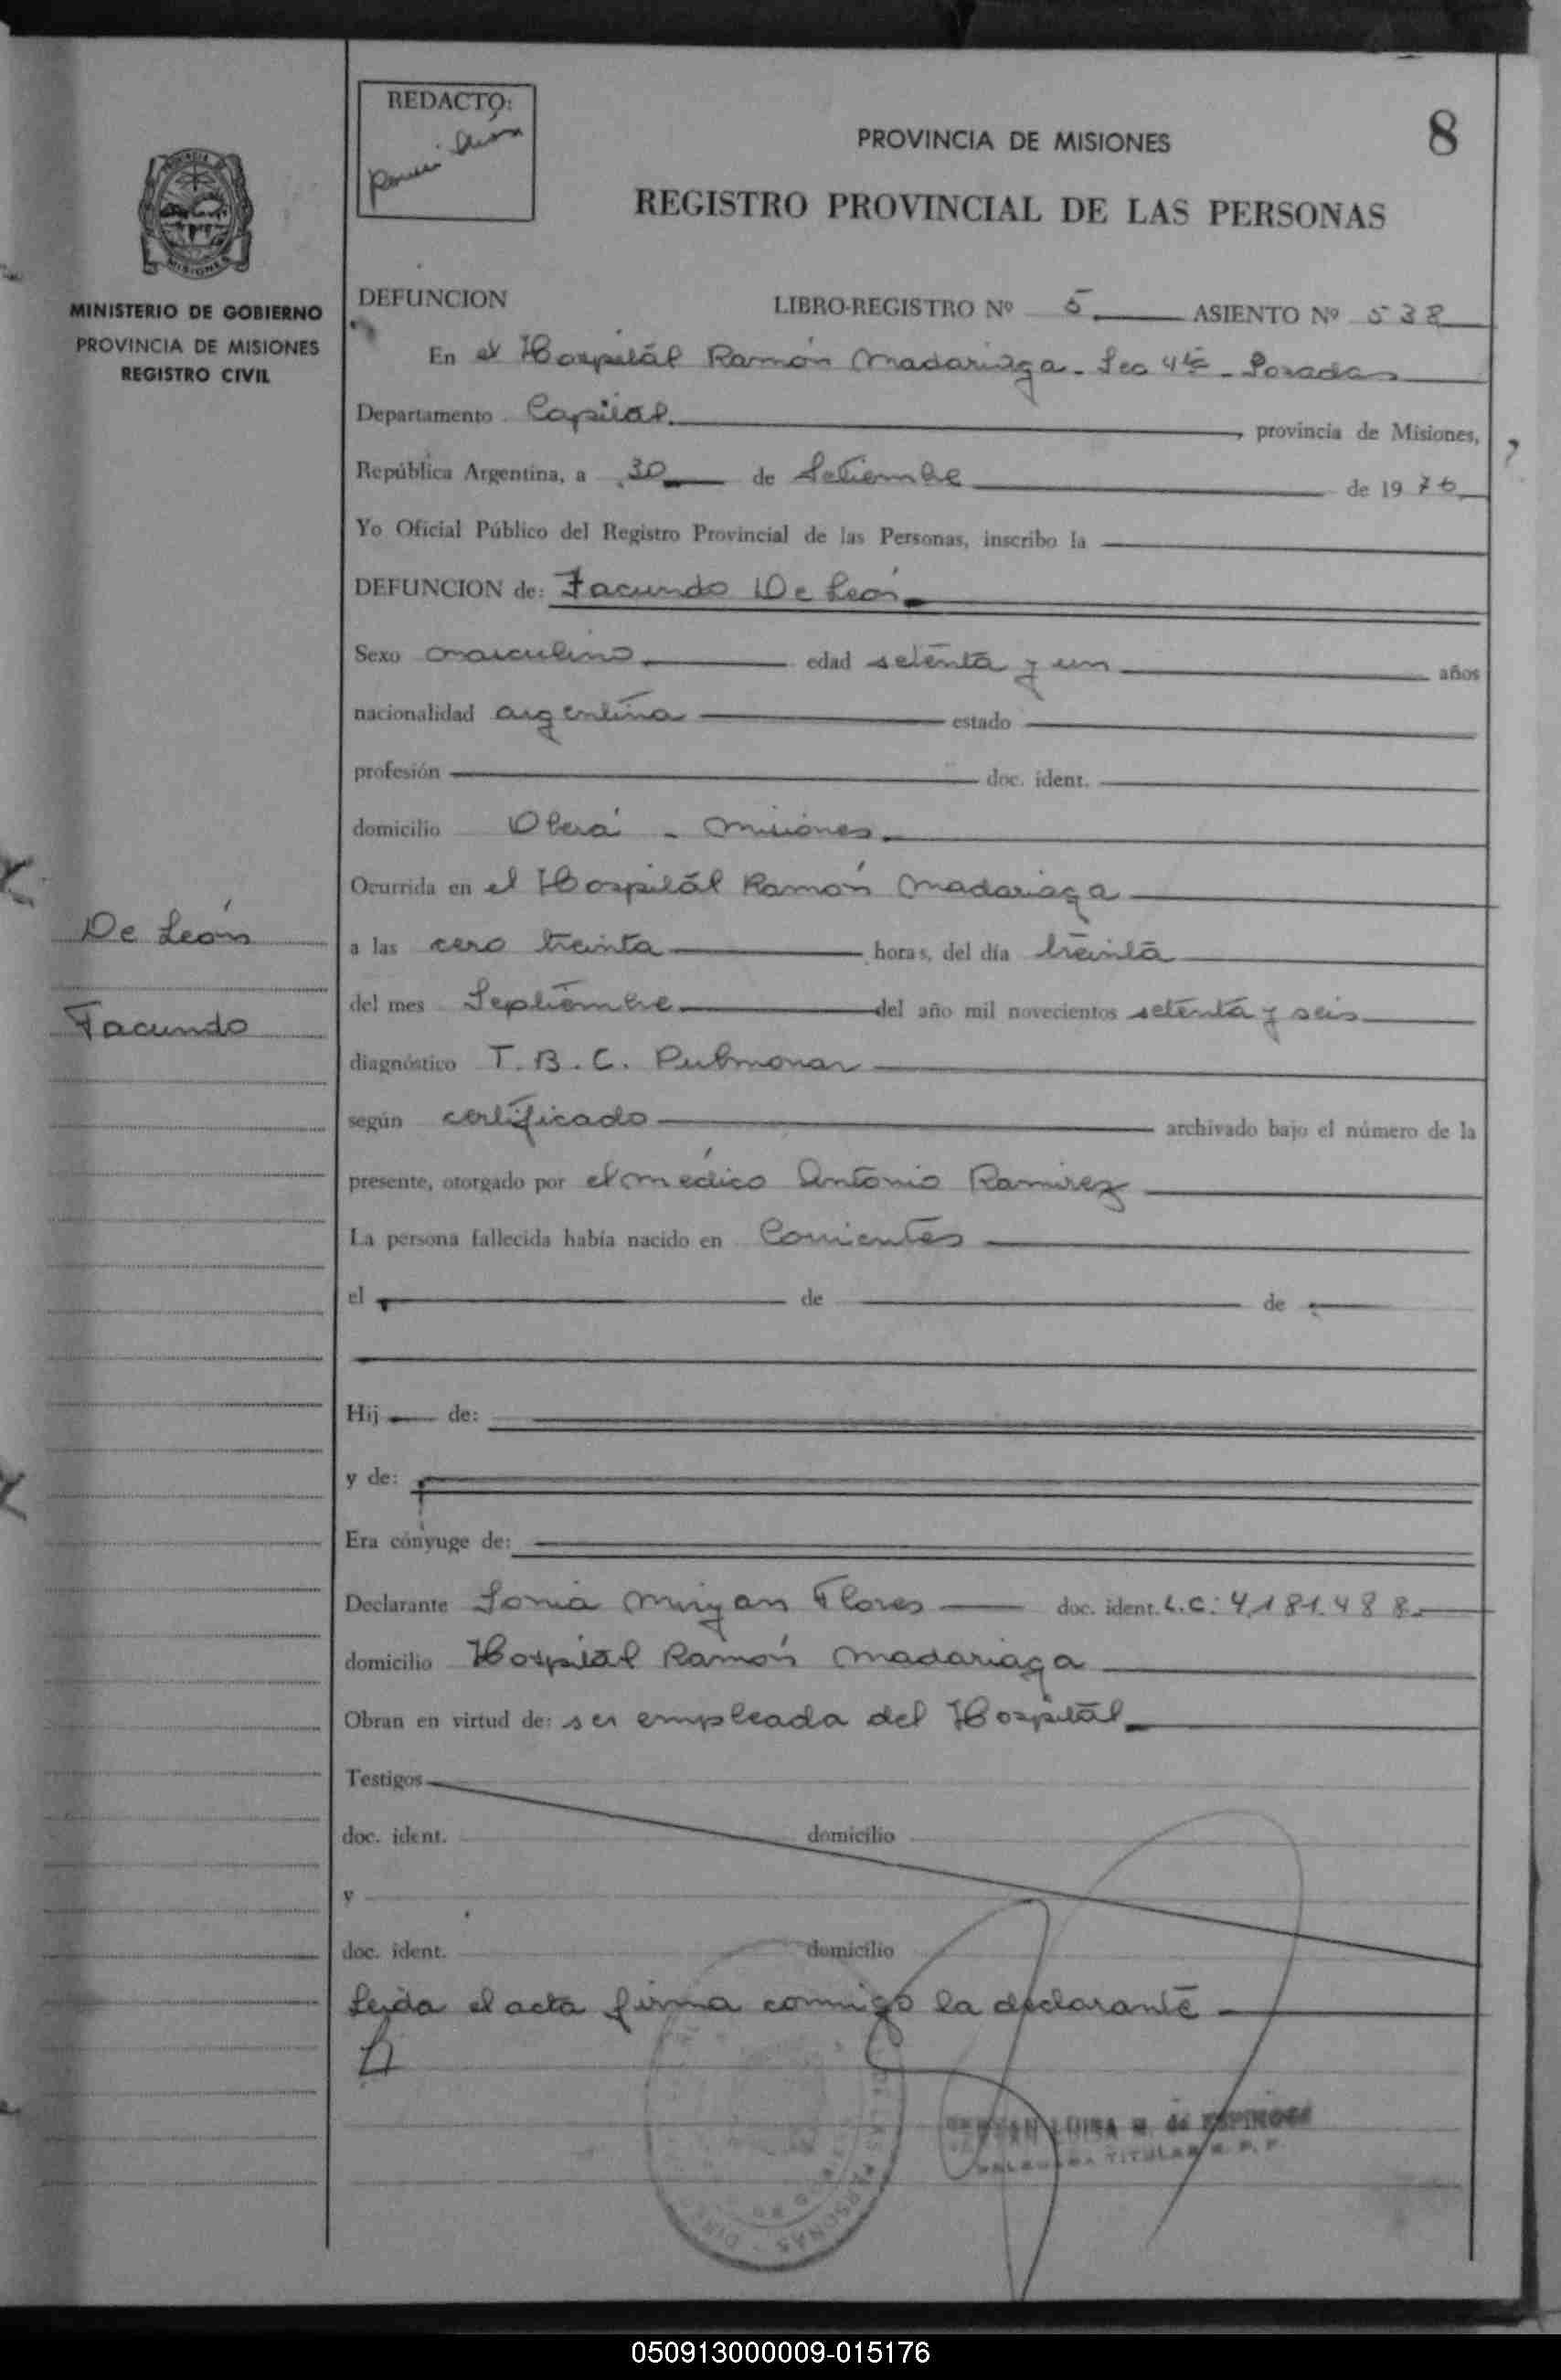 REDACTO:
PROVINCIA DE MISIONES
8
REGISTRO PROVINCIAL DE LAS PERSONAS
MISIONES
MINISTERIO DE GOBIERNO
PROVINCIA DE MISIONES
REGISTRO CIVIL
DEFUNCION LIBRO-REGISTRO Nº 5 ASIENTO Nº 538
En el Hospitál Ramón Madariaga - Sec 4ta - Posadas
Departamento Capital. , provincia de Misiones,
República Argentina, a 30 de Setiembre de 1976
Yo Oficial Público del Registro Provincial de las Personas, inscribo la
DEFUNCION de: Facundo De León
Sexo masculino edad setenta y un años
nacionalidad argentina estado
profesión doc. ident.
domicilio Oberá - Misiones
Ocurrida en el Hospitál Ramón Madariaga
De León
a las cero treinta horas, del día treinta
Facundo
del mes Septiembre del año mil novecientos setenta y seis
diagnóstico T.B.C. Pulmonar
según certificado archivado bajo el número de la
presente, otorgado por el médico Antonio Ramirez
La persona fallecida había nacido en Corrientes
el de de
Hij de:
y de:
Era cónyuge de:
Declarante Sonia Miryan Flores doc. ident. L.C: 4.181.488
domicilio Hospital Ramón Madariaga
Obran en virtud de: ser empleada del Hospitál
Testigos
doc. ident. domicilio
y
doc. ident. domicilio
Leida el acta firma conmigo la declarante
LUISA M. de ESPINOSA
TITULAR R. P. P.
050913000009-015176